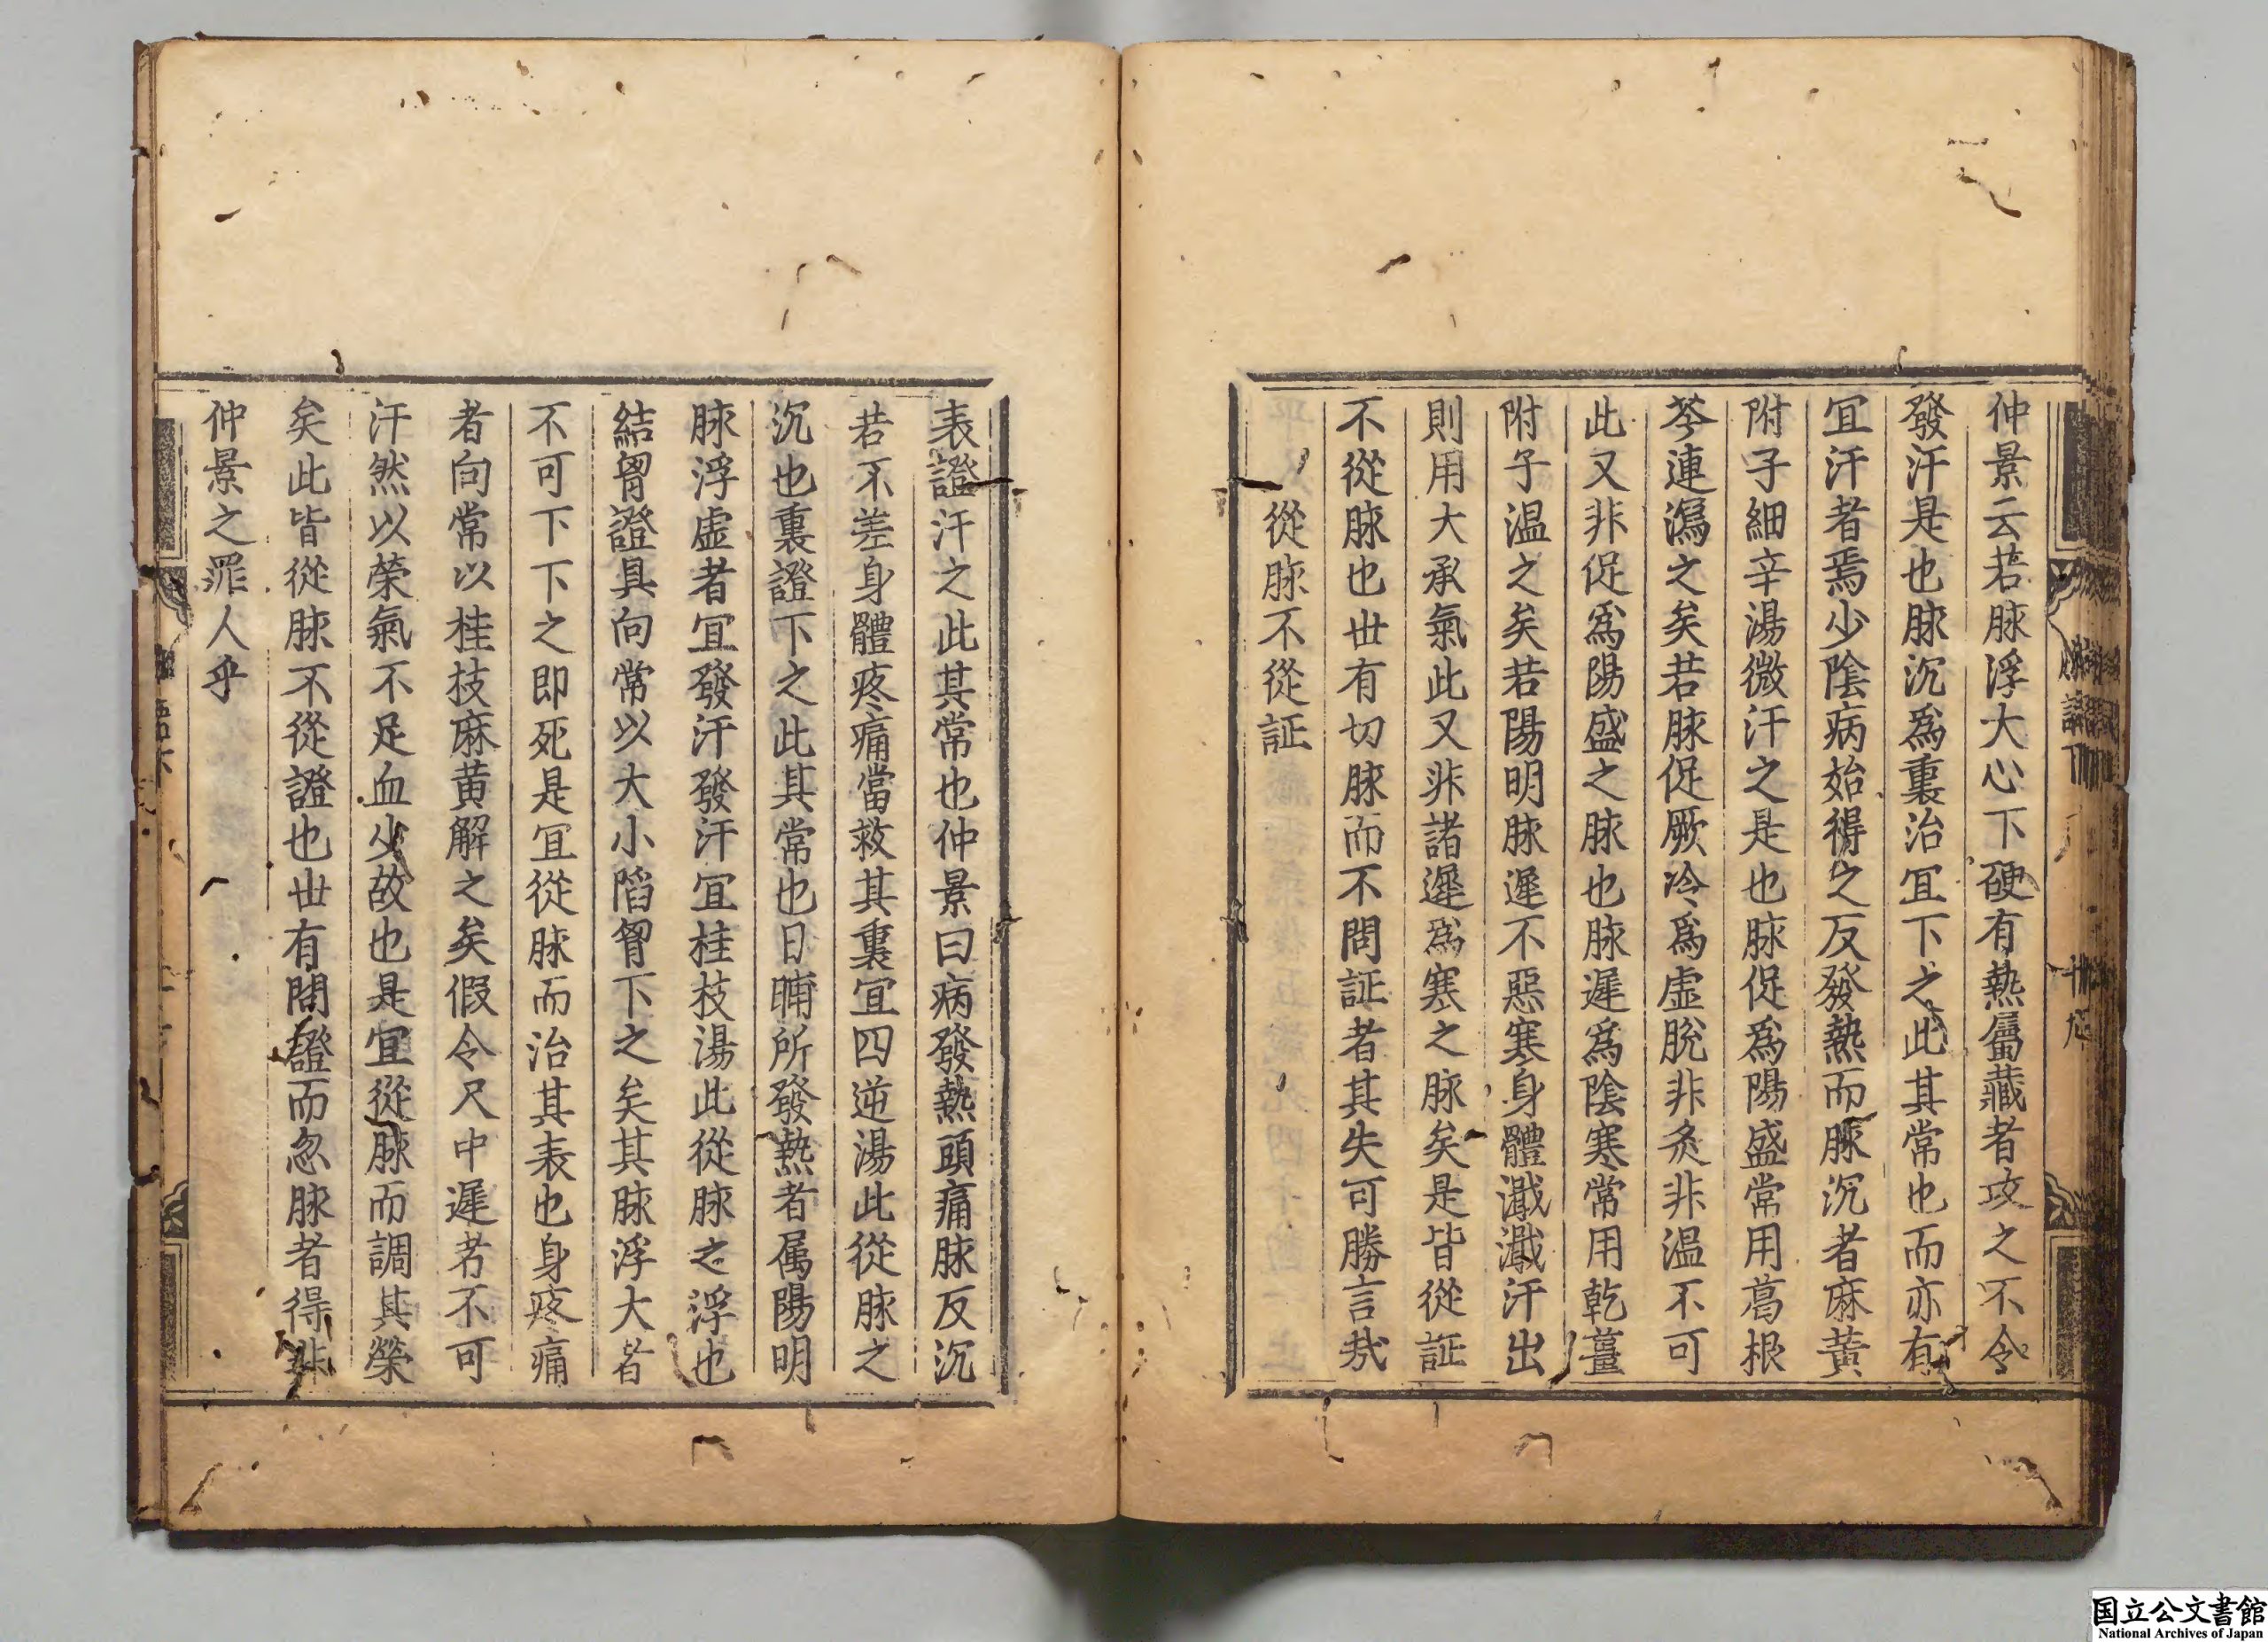 仲景云若脉浮大心下硬有熱屬藏者攻之不令
發汗是也脉沉爲裏治宜下之此其常也而亦有
宜汗者焉少陰病始得之反發熱而脉沉者麻黄
附子細辛湯微汗之是也脉促爲陽盛常用葛根
芩連瀉之矣若脉促厥冷爲虛脫非灸非温不可
此又非促爲陽盛之脉也脉遲爲陰寒常用乾薑
附子温之矣若陽明脉遲不惡寒身體濈濈汗出
則用大承氣此又非諸遲爲寒之脉矣是皆從証
不從脉也世有切脉而不問証者其失可勝言哉
從脉不從証
表證汗之此其常也仲景曰病發熱頭痛脉反沉
若不差身體疼痛當救其裏宜四逆湯此從脉之
沉也裏證下之此其常也日晡所發熱者屬陽明
脉浮虛者宜發汗發汗宜桂枝湯此從脉之浮也
結胷證具向常以大小陷胷下之矣其脉浮大者
不可下下之即死是宜從脉而治其表也身疼痛
者向常以桂枝麻黄解之矣假令尺中遲者不可
汗然以榮氣不足血少故也是宜從脉而調其榮
矣此皆從脉不從證也世有問證而忽脉者得非
仲景之罪人乎
脉語下
卄九
国立公文書館
National Archives of Japan